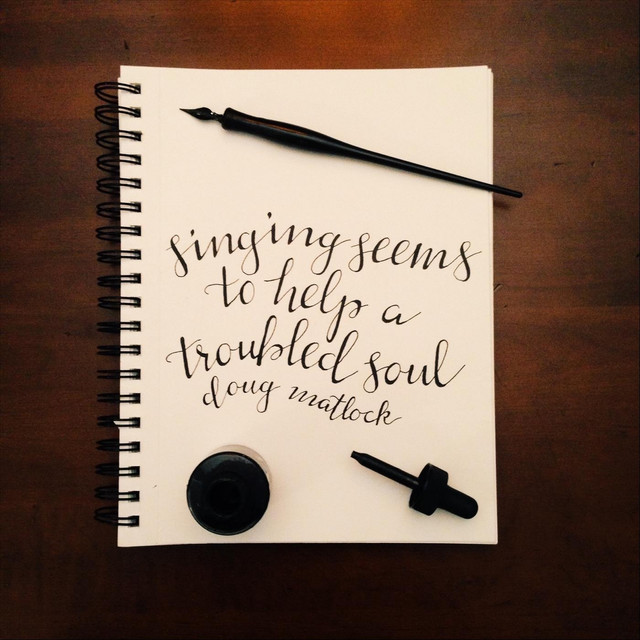 singing seems
to help a
troubled soul
doug matlock